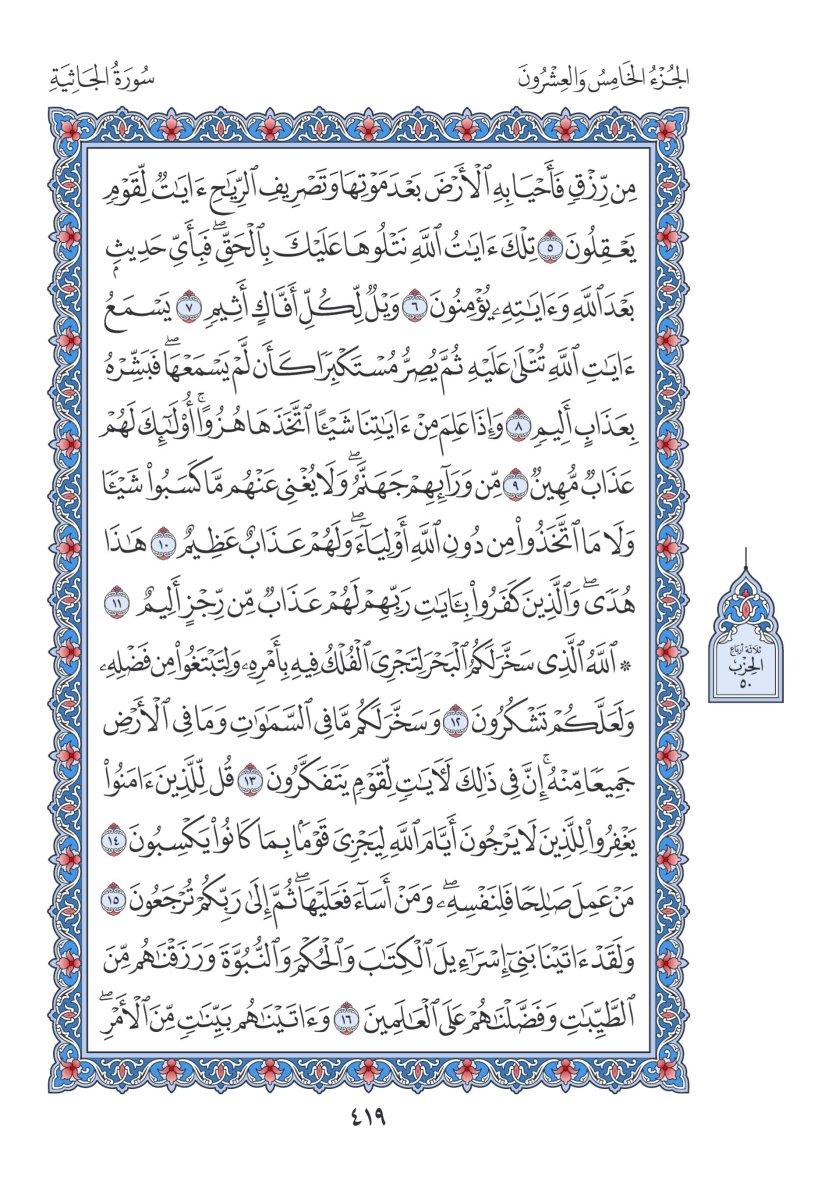 الجُزْءُ الخَامِسُ وَالعِشْرُونَ
سُورَةُ الجَاثِيَةِ
مِن رِّزۡقٖ فَأَحۡيَا بِهِ ٱلۡأَرۡضَ بَعۡدَ مَوۡتِهَا وَتَصۡرِيفِ ٱلرِّيَٰحِ ءَايَٰتٞ لِّقَوۡمٖ
يَعۡقِلُونَ ٥ تِلۡكَ ءَايَٰتُ ٱللَّهِ نَتۡلُوهَا عَلَيۡكَ بِٱلۡحَقِّۖ فَبِأَيِّ حَدِيثِۭ
بَعۡدَ ٱللَّهِ وَءَايَٰتِهِۦ يُؤۡمِنُونَ ٦ وَيۡلٞ لِّكُلِّ أَفَّاكٍ أَثِيمٖ ٧ يَسۡمَعُ
ءَايَٰتِ ٱللَّهِ تُتۡلَىٰ عَلَيۡهِ ثُمَّ يُصِرُّ مُسۡتَكۡبِرٗا كَأَن لَّمۡ يَسۡمَعۡهَاۖ فَبَشِّرۡهُ
بِعَذَابٍ أَلِيمٖ ٨ وَإِذَا عَلِمَ مِنۡ ءَايَٰتِنَا شَيۡـًٔا ٱتَّخَذَهَا هُزُوًاۚ أُوْلَٰٓئِكَ لَهُمۡ
عَذَابٞ مُّهِينٞ ٩ مِّن وَرَآئِهِمۡ جَهَنَّمُۖ وَلَا يُغۡنِي عَنۡهُم مَّا كَسَبُواْ شَيۡـٔٗا
وَلَا مَا ٱتَّخَذُواْ مِن دُونِ ٱللَّهِ أَوۡلِيَآءَۖ وَلَهُمۡ عَذَابٌ عَظِيمٌ ١٠ هَٰذَا
هُدٗىۖ وَٱلَّذِينَ كَفَرُواْ بِـَٔايَٰتِ رَبِّهِمۡ لَهُمۡ عَذَابٞ مِّن رِّجۡزٍ أَلِيمٌ ١١
۞ ٱللَّهُ ٱلَّذِي سَخَّرَ لَكُمُ ٱلۡبَحۡرَ لِتَجۡرِيَ ٱلۡفُلۡكُ فِيهِ بِأَمۡرِهِۦ وَلِتَبۡتَغُواْ مِن فَضۡلِهِۦ
وَلَعَلَّكُمۡ تَشۡكُرُونَ ١٢ وَسَخَّرَ لَكُم مَّا فِي ٱلسَّمَٰوَٰتِ وَمَا فِي ٱلۡأَرۡضِ
جَمِيعٗا مِّنۡهُۚ إِنَّ فِي ذَٰلِكَ لَأٓيَٰتٖ لِّقَوۡمٖ يَتَفَكَّرُونَ ١٣ قُل لِّلَّذِينَ ءَامَنُواْ
يَغۡفِرُواْ لِلَّذِينَ لَا يَرۡجُونَ أَيَّامَ ٱللَّهِ لِيَجۡزِيَ قَوۡمَۢا بِمَا كَانُواْ يَكۡسِبُونَ ١٤
مَنۡ عَمِلَ صَٰلِحٗا فَلِنَفۡسِهِۦۖ وَمَنۡ أَسَآءَ فَعَلَيۡهَاۖ ثُمَّ إِلَىٰ رَبِّكُمۡ تُرۡجَعُونَ ١٥
وَلَقَدۡ ءَاتَيۡنَا بَنِيٓ إِسۡرَٰٓءِيلَ ٱلۡكِتَٰبَ وَٱلۡحُكۡمَ وَٱلنُّبُوَّةَ وَرَزَقۡنَٰهُم مِّنَ
ٱلطَّيِّبَٰتِ وَفَضَّلۡنَٰهُمۡ عَلَى ٱلۡعَٰلَمِينَ ١٦ وَءَاتَيۡنَٰهُم بَيِّنَٰتٖ مِّنَ ٱلۡأَمۡرِۖ
ثلاثة أرباع
الحِزْب
٥٠
٤١٩